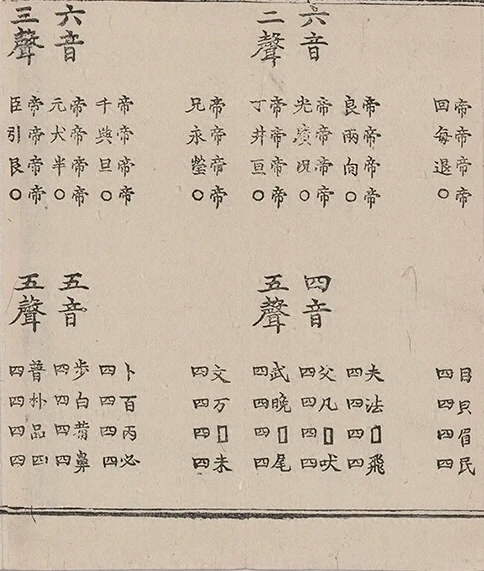 帝帝帝帝
回每退○
六音
二聲
帝帝帝帝
良兩向○
帝帝帝帝
光廣況○
帝帝帝帝
丁井亘○
帝帝帝帝
兄永瑩○
六音
三聲
帝帝帝帝
千典旦○
帝帝帝帝
元犬半○
帝帝帝帝
臣引艮○
目皃眉民
四四四四
四音
五聲
夫法□飛
四四四四
父凡□吠
四四四四
武晚□尾
四四四四
文万□未
四四四四
五音
五聲
卜百丙必
四四四四
步白葡鼻
四四四四
普朴品匹
四四四四